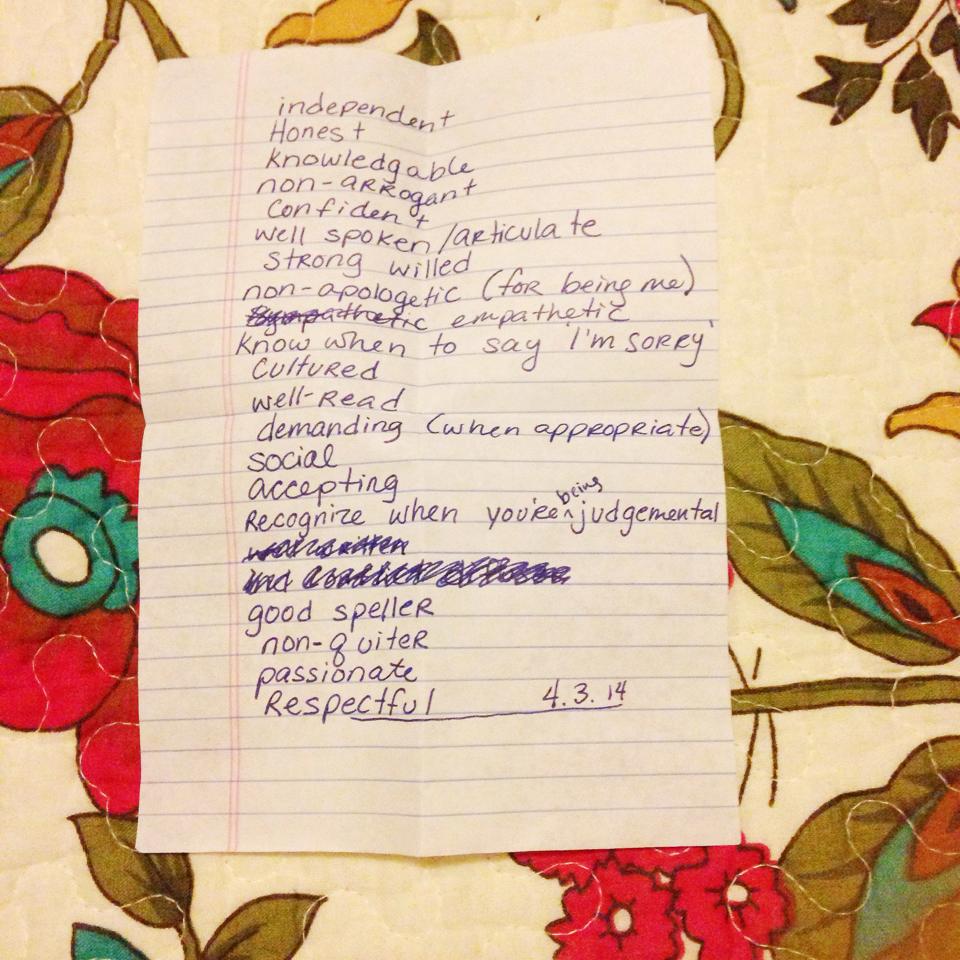 independent
Honest
knowledgable
non-arrogant
confident
well spoken/articulate
strong willed
non-apologetic (for being me)
sympathetic empathetic
know when to say 'I'm sorry'
cultured
well-read
demanding (when appropriate)
social
accepting
Recognize when you're being judgemental
well written
good speller
non-quiter
passionate
Respectful 4.3.14